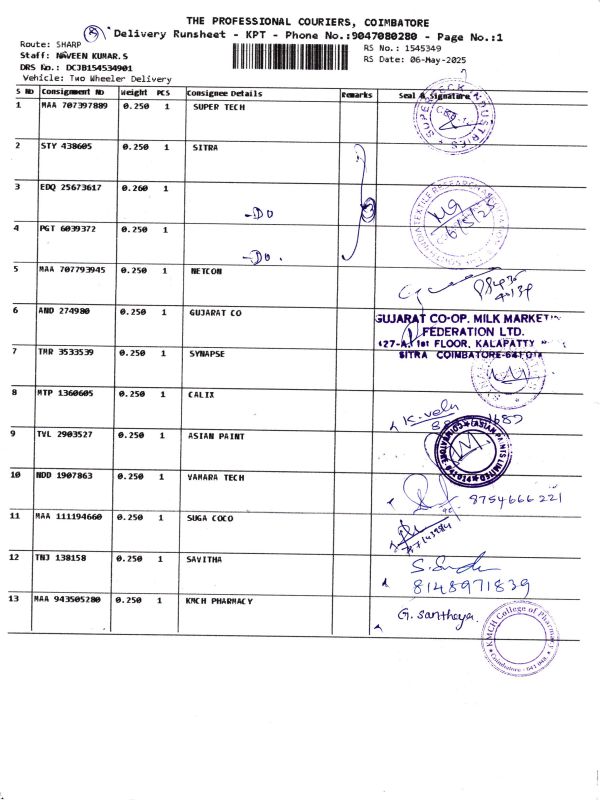 THE PROFESSIONAL COURIERS, COIMBATORE
8 Delivery Runsheet - KPT - Phone No.:9047080280 - Page No.:1
Route: SHARP
RS No.: 1545349
Staff: NAVEEN KUMAR.S
RS Date: 06-May-2025
DRS No.: DCJB154534901
Vehicle: Two Wheeler Delivery
S No Consignment No Weight PCS Consignee Details Remarks Seal & Signature
1 MAA 707397889 0.250 1 SUPER TECH
2 STY 438605 0.250 1 SITRA
3 EDQ 25673617 0.260 1 -DO
4 PGT 6039372 0.250 1 -DO.
6/5/25
5 MAA 707793945 0.250 1 NETCON
6 AND 274980 0.250 1 GUJARAT CO
GUJARAT CO-OP. MILK MARKET
FEDERATION LTD.
1st FLOOR, KALAPATTY
SITRA COIMBATORE-641014
7 TMR 3533539 0.250 1 SYNAPSE
8 MTP 1360605 0.250 1 CALIX
K. velu
9 TVL 2903527 0.250 1 ASIAN PAINT
ASIAN PAINTS LIMITED COIMBATORE
10 NDD 1907863 0.250 1 VAHARA TECH
8754666221
11 MAA 111194660 0.250 1 SUGA COCO
12 TNJ 138158 0.250 1 SAVITHA
8148971839
13 MAA 943505280 0.250 1 KMCH PHARMACY G. Santheya.
KMCH College of Pharmacy
Coimbatore - 641 048.